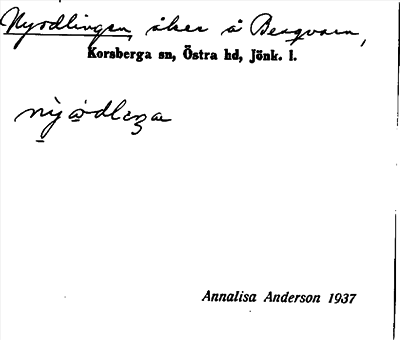 Nyodlingen åker å Bergvarn,
Korsberga sn, Östra hd, Jönk. l.
Annalisa Anderson 1937